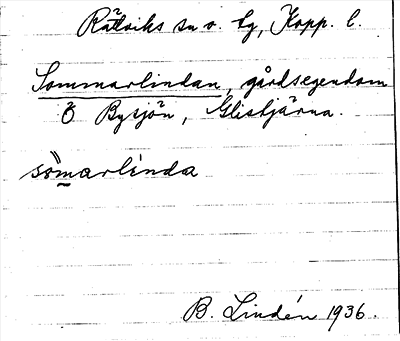 Rättviks sn o. tg, Kopp. l.
Sommarlindan, gårdsegendom
Ö Bysjön, Glistjärna.
sòmarlinda
B. Lindén 1936.